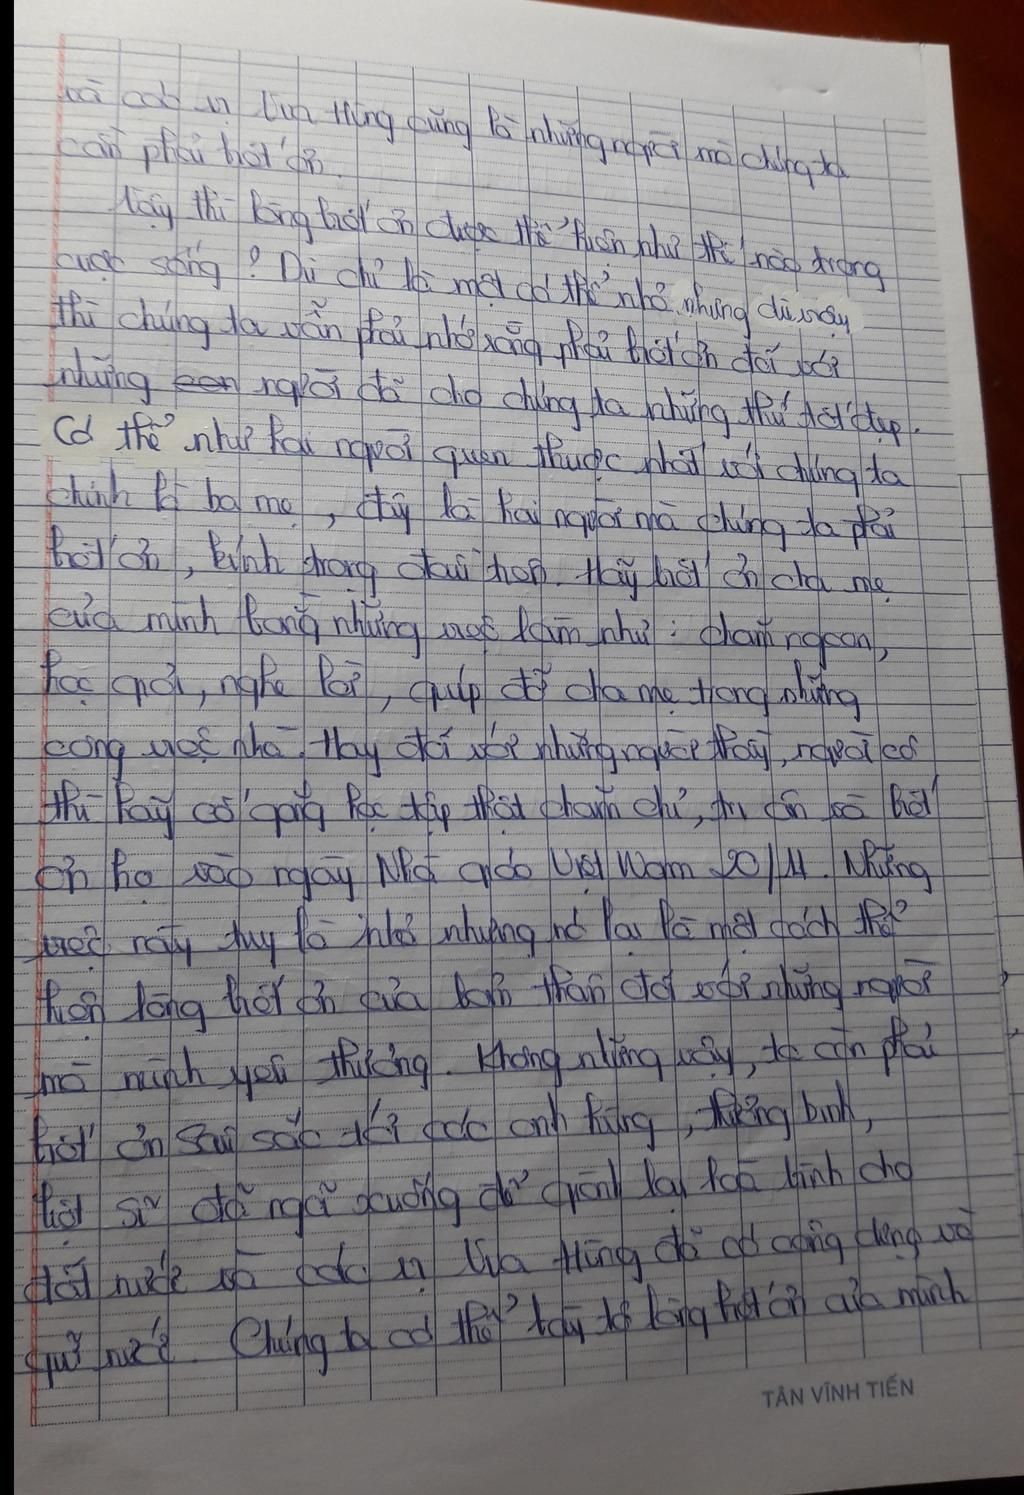 và các vị vua Hùng cũng là những người mà chúng ta
cần phải biết ơn.
Vậy thì lòng biết ơn được thể hiện như thế nào trong
cuộc sống? Dù chỉ là một cá thể nhỏ nhưng dù vậy
thì chúng ta vẫn phải nhớ rằng phải biết ơn đối với
những con người đã cho chúng ta những thứ tốt đẹp.
Có thể như hai người quen thuộc nhất với chúng ta
chính là ba mẹ, đây là hai người mà chúng ta phải
biết ơn, kính trọng đầu tiên. Hãy biết ơn cha mẹ
của mình bằng những việc làm như: chăm ngoan,
học giỏi, nghe lời, giúp đỡ cha mẹ trong những
công việc nhà. Hay đối với những người thầy, người cô
thì hãy cố gắng học tập thật chăm chỉ, tri ân và biết
ơn họ vào ngày Nhà giáo Việt Nam 20/11. Những
việc này tuy là nhỏ nhưng nó lại là một cách thể
hiện lòng biết ơn của bản thân đối với những người
mà mình yêu thương. Không những vậy, ta cần phải
biết ơn sâu sắc tới các anh hùng, thương binh,
liệt sĩ đã ngã xuống để giành lại hoà bình cho
đất nước và các vị vua Hùng đã có công dựng và
giữ nước. Chúng ta có thể bày tỏ lòng biết ơn của mình
TÂN VĨNH TIẾN